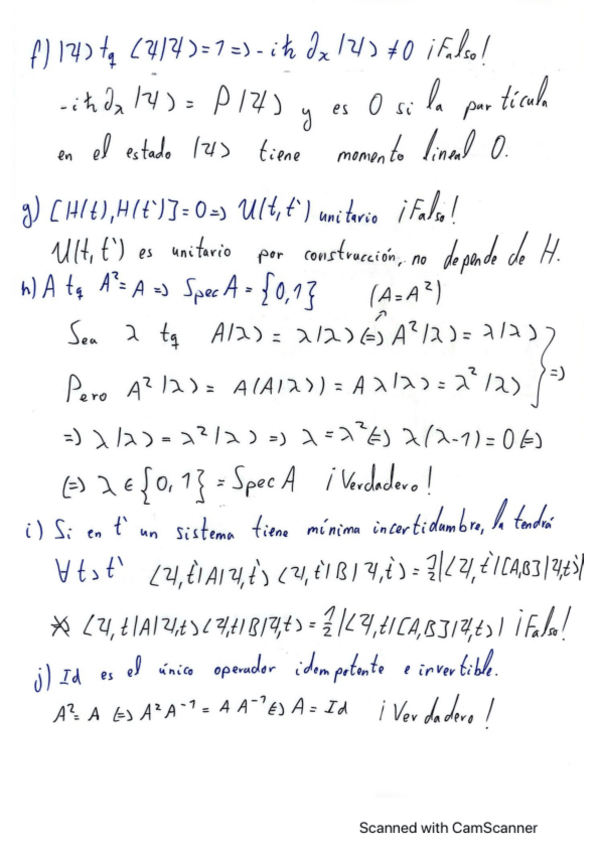 f) |ψ⟩ tq ⟨ψ|ψ⟩=1 ⇒ -iħ ∂ₓ|ψ⟩ ≠ 0 ¡Falso!
-iħ∂ₓ|ψ⟩ = P|ψ⟩ y es 0 si la partícula
en el estado |ψ⟩ tiene momento lineal 0.
g) [H(t),H(t')]=0 ⇒ U(t,t') unitario ¡Falso!
U(t,t') es unitario por construcción, no depende de H.
h) A tq A²=A ⇒ Spec A = {0,1} (A=A²)
Sea λ tq A|λ⟩ = λ|λ⟩ ⇔ A²|λ⟩ = λ|λ⟩
Pero A²|λ⟩ = A(A|λ⟩) = Aλ|λ⟩ = λ²|λ⟩ } ⇒
⇒ λ|λ⟩ = λ²|λ⟩ ⇒ λ=λ² ⇔ λ(λ-1)=0 ⇔
⇔ λ ∈ {0,1} = Spec A ¡Verdadero!
i) Si en t' un sistema tiene mínima incertidumbre, la tendrá
∀t>t' ⟨ψ,t'|A|ψ,t'⟩⟨ψ,t'|B|ψ,t'⟩ = 1/2|⟨ψ,t'|[A,B]|ψ,t'⟩|
⇏ ⟨ψ,t|A|ψ,t⟩⟨ψ,t|B|ψ,t⟩ = 1/2|⟨ψ,t|[A,B]|ψ,t⟩| ¡Falso!
j) Id es el único operador idempotente e invertible.
A²=A ⇔ A²A⁻¹ = AA⁻¹ ⇔ A = Id ¡Verdadero!
Scanned with CamScanner